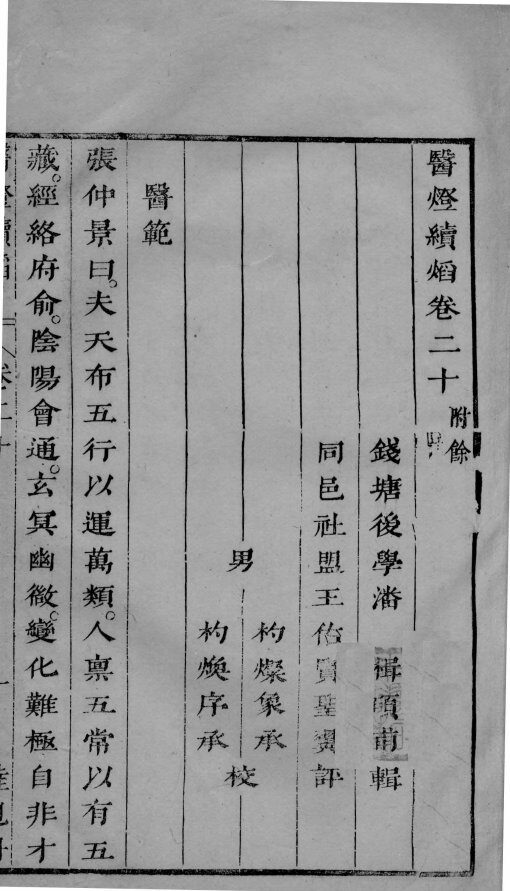 醫燈續焰卷二十 附餘
錢塘後學潘 楫頤甫輯
同邑社盟王佑賢聖翼評
男 杓燦象承
杓煥序承 校
醫範
張仲景曰。夫天布五行以運萬類。人禀五常以有五
藏。經絡府俞。陰陽會通。玄冥幽微。變化難極自非才